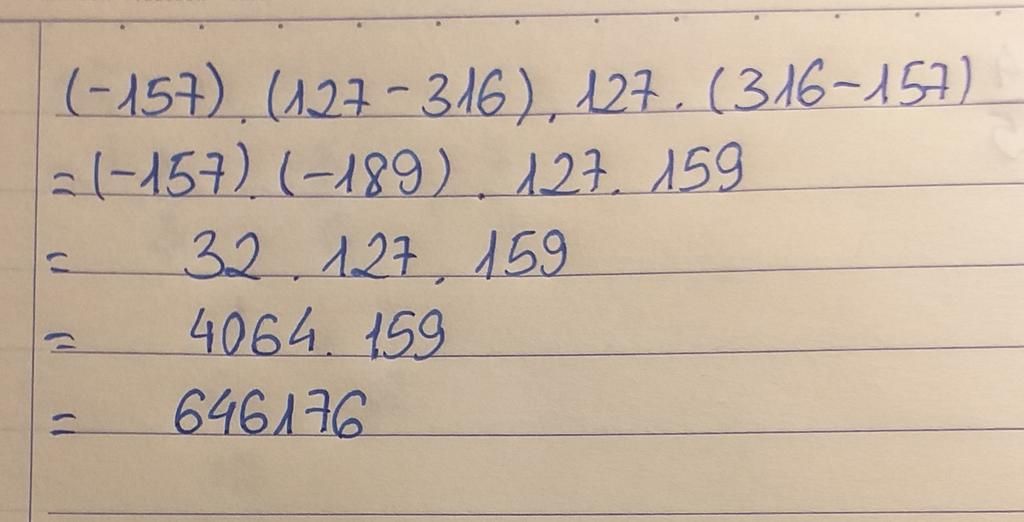 (-157) . (127 - 316) . 127 . (316 - 157)
= (-157) . (-189) . 127 . 159
= 32 . 127 . 159
= 4064 . 159
= 646176